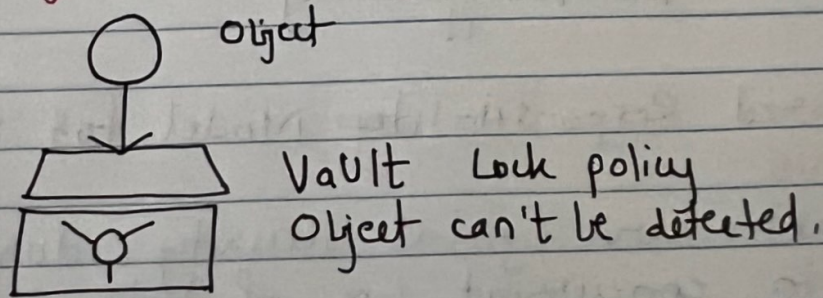 Object
Vault Lock policy
Object can't be deteted.